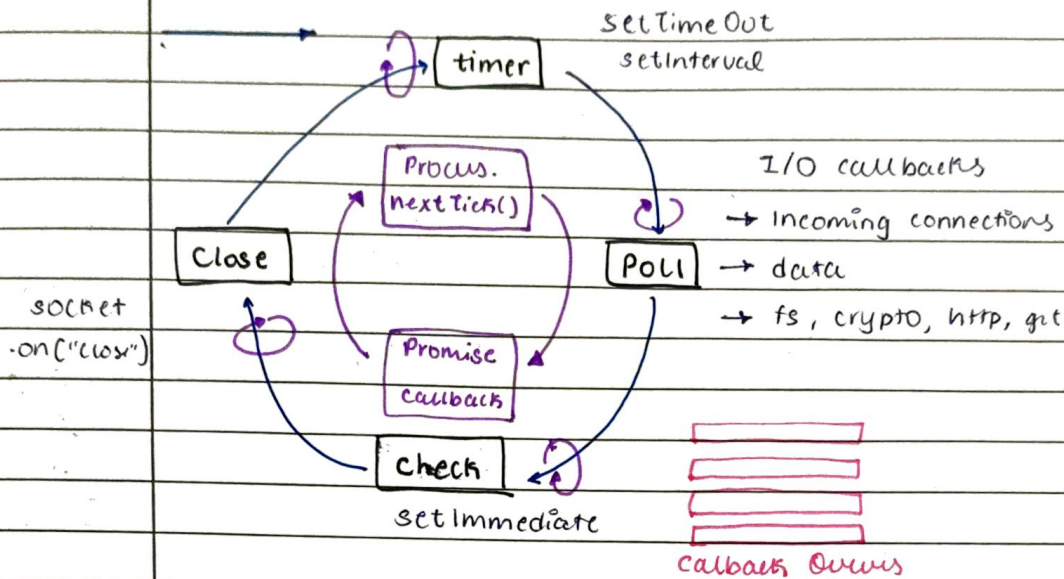 setTimeOut
setInterval
timer
Process.
nextTick()
I/O callbacks
→ Incoming connections
Close
Poll
→ data
→ fs, crypto, http, get
socket
.on("close")
Promise
callback
Check
setImmediate
Callback Queues